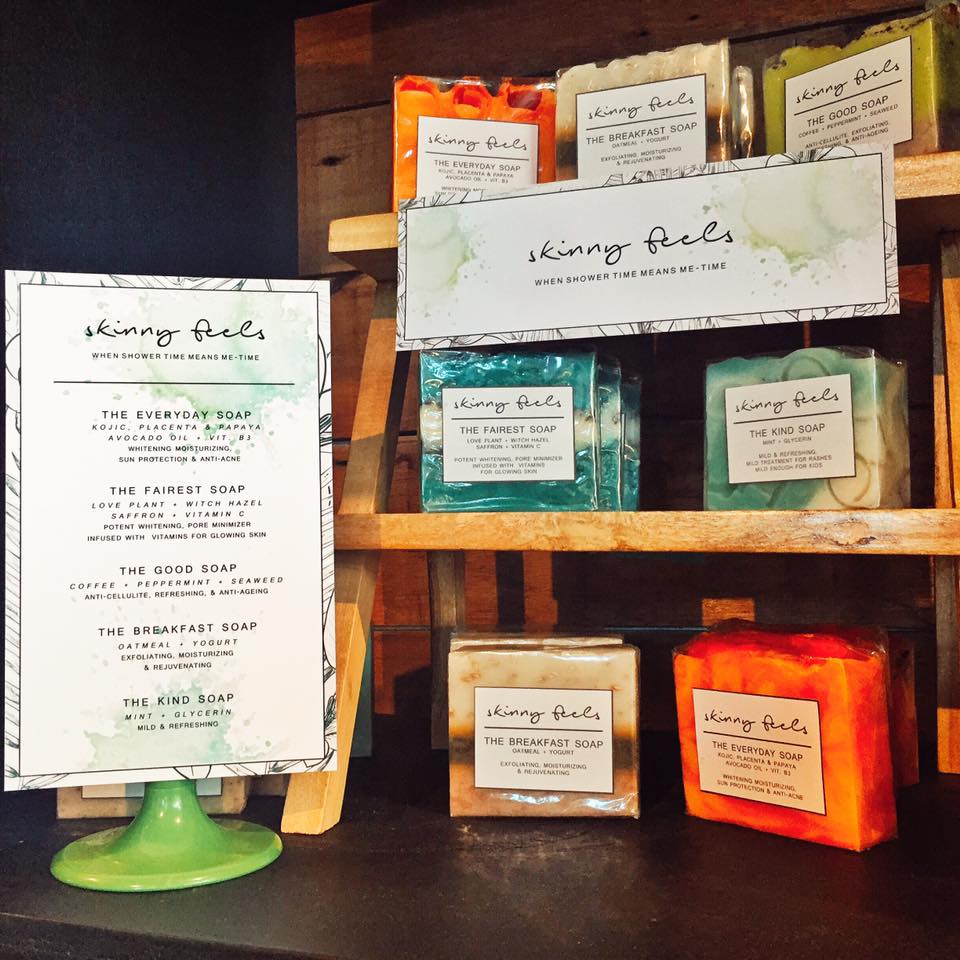 skinny feels
WHEN SHOWER TIME MEANS ME-TIME
THE EVERYDAY SOAP
KOJIC, PLACENTA & PAPAYA
AVOCADO OIL + VIT. B3
WHITENING MOISTURIZING,
SUN PROTECTION & ANTI-ACNE
THE FAIREST SOAP
LOVE PLANT + WITCH HAZEL
SAFFRON + VITAMIN C
POTENT WHITENING, PORE MINIMIZER
INFUSED WITH VITAMINS FOR GLOWING SKIN
THE GOOD SOAP
COFFEE + PEPPERMINT + SEAWEED
ANTI-CELLULITE, REFRESHING, & ANTI-AGEING
THE BREAKFAST SOAP
OATMEAL + YOGURT
EXFOLIATING, MOISTURIZING
& REJUVENATING
THE KIND SOAP
MINT + GLYCERIN
MILD & REFRESHING
skinny feels
THE EVERYDAY SOAP
KOJIC, PLACENTA & PAPAYA
AVOCADO OIL + VIT. B3
WHITENING
skinny feels
THE BREAKFAST SOAP
OATMEAL + YOGURT
EXFOLIATING, MOISTURIZING
& REJUVENATING
skinny feels
THE GOOD SOAP
COFFEE + PEPPERMINT + SEAWEED
ANTI-CELLULITE, EXFOLIATING,
& ANTI-AGEING
skinny feels
WHEN SHOWER TIME MEANS ME-TIME
skinny feels
THE FAIREST SOAP
LOVE PLANT + WITCH HAZEL
SAFFRON + VITAMIN C
POTENT WHITENING, PORE MINIMIZER
INFUSED WITH VITAMINS
FOR GLOWING SKIN
skinny feels
THE KIND SOAP
MINT + GLYCERIN
MILD & REFRESHING,
MILD TREATMENT FOR RASHES
MILD ENOUGH FOR KIDS
skinny feels
THE BREAKFAST SOAP
OATMEAL + YOGURT
EXFOLIATING, MOISTURIZING
& REJUVENATING
skinny feels
THE EVERYDAY SOAP
KOJIC, PLACENTA & PAPAYA
AVOCADO OIL + VIT. B3
WHITENING MOISTURIZING,
SUN PROTECTION & ANTI-ACNE